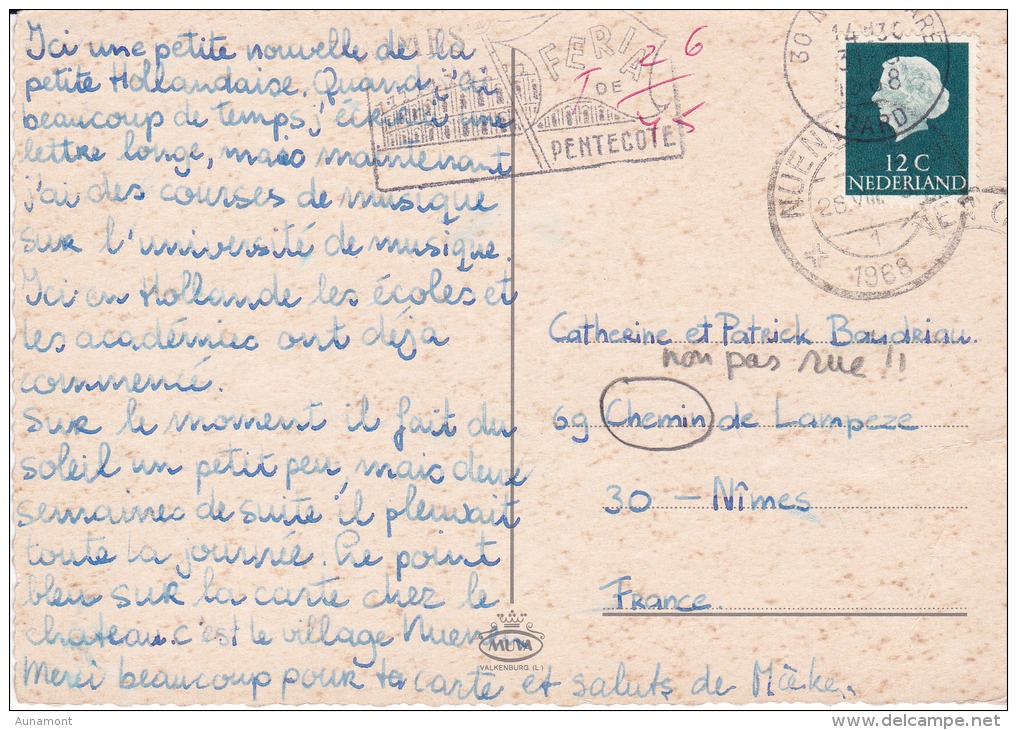 Ici une petite nouvelle de la
petite Hollandaise. Quand j'ai
beaucoup de temps j'écrirai une
lettre longe, mais maintenant
j'ai des courses de musique
sur l'université de musique.
Ici en Hollande les écoles et
les académies ont déja
commencé.
Sur le moment il fait du
soleil un petit peu, mais deux
semaines de suite il pleuvait
toute la journée. Le point
bleu sur la carte chez le
chateau c'est le village Nuenen.
Merci beaucoup pour ta carte et saluts de
FERIA
DE
PENTECOTE
I 2 6
45
30
14 H30
GARD
12 C
NEDERLAND
NUENEN
28.VIII
1
1968
Catherine et Patrick Baudriau.
non pas rue !!
69 Chemin de Lampeze
30 — Nîmes
France.
MUVA
VALKENBURG (L)
Aunamont
delcampe.net